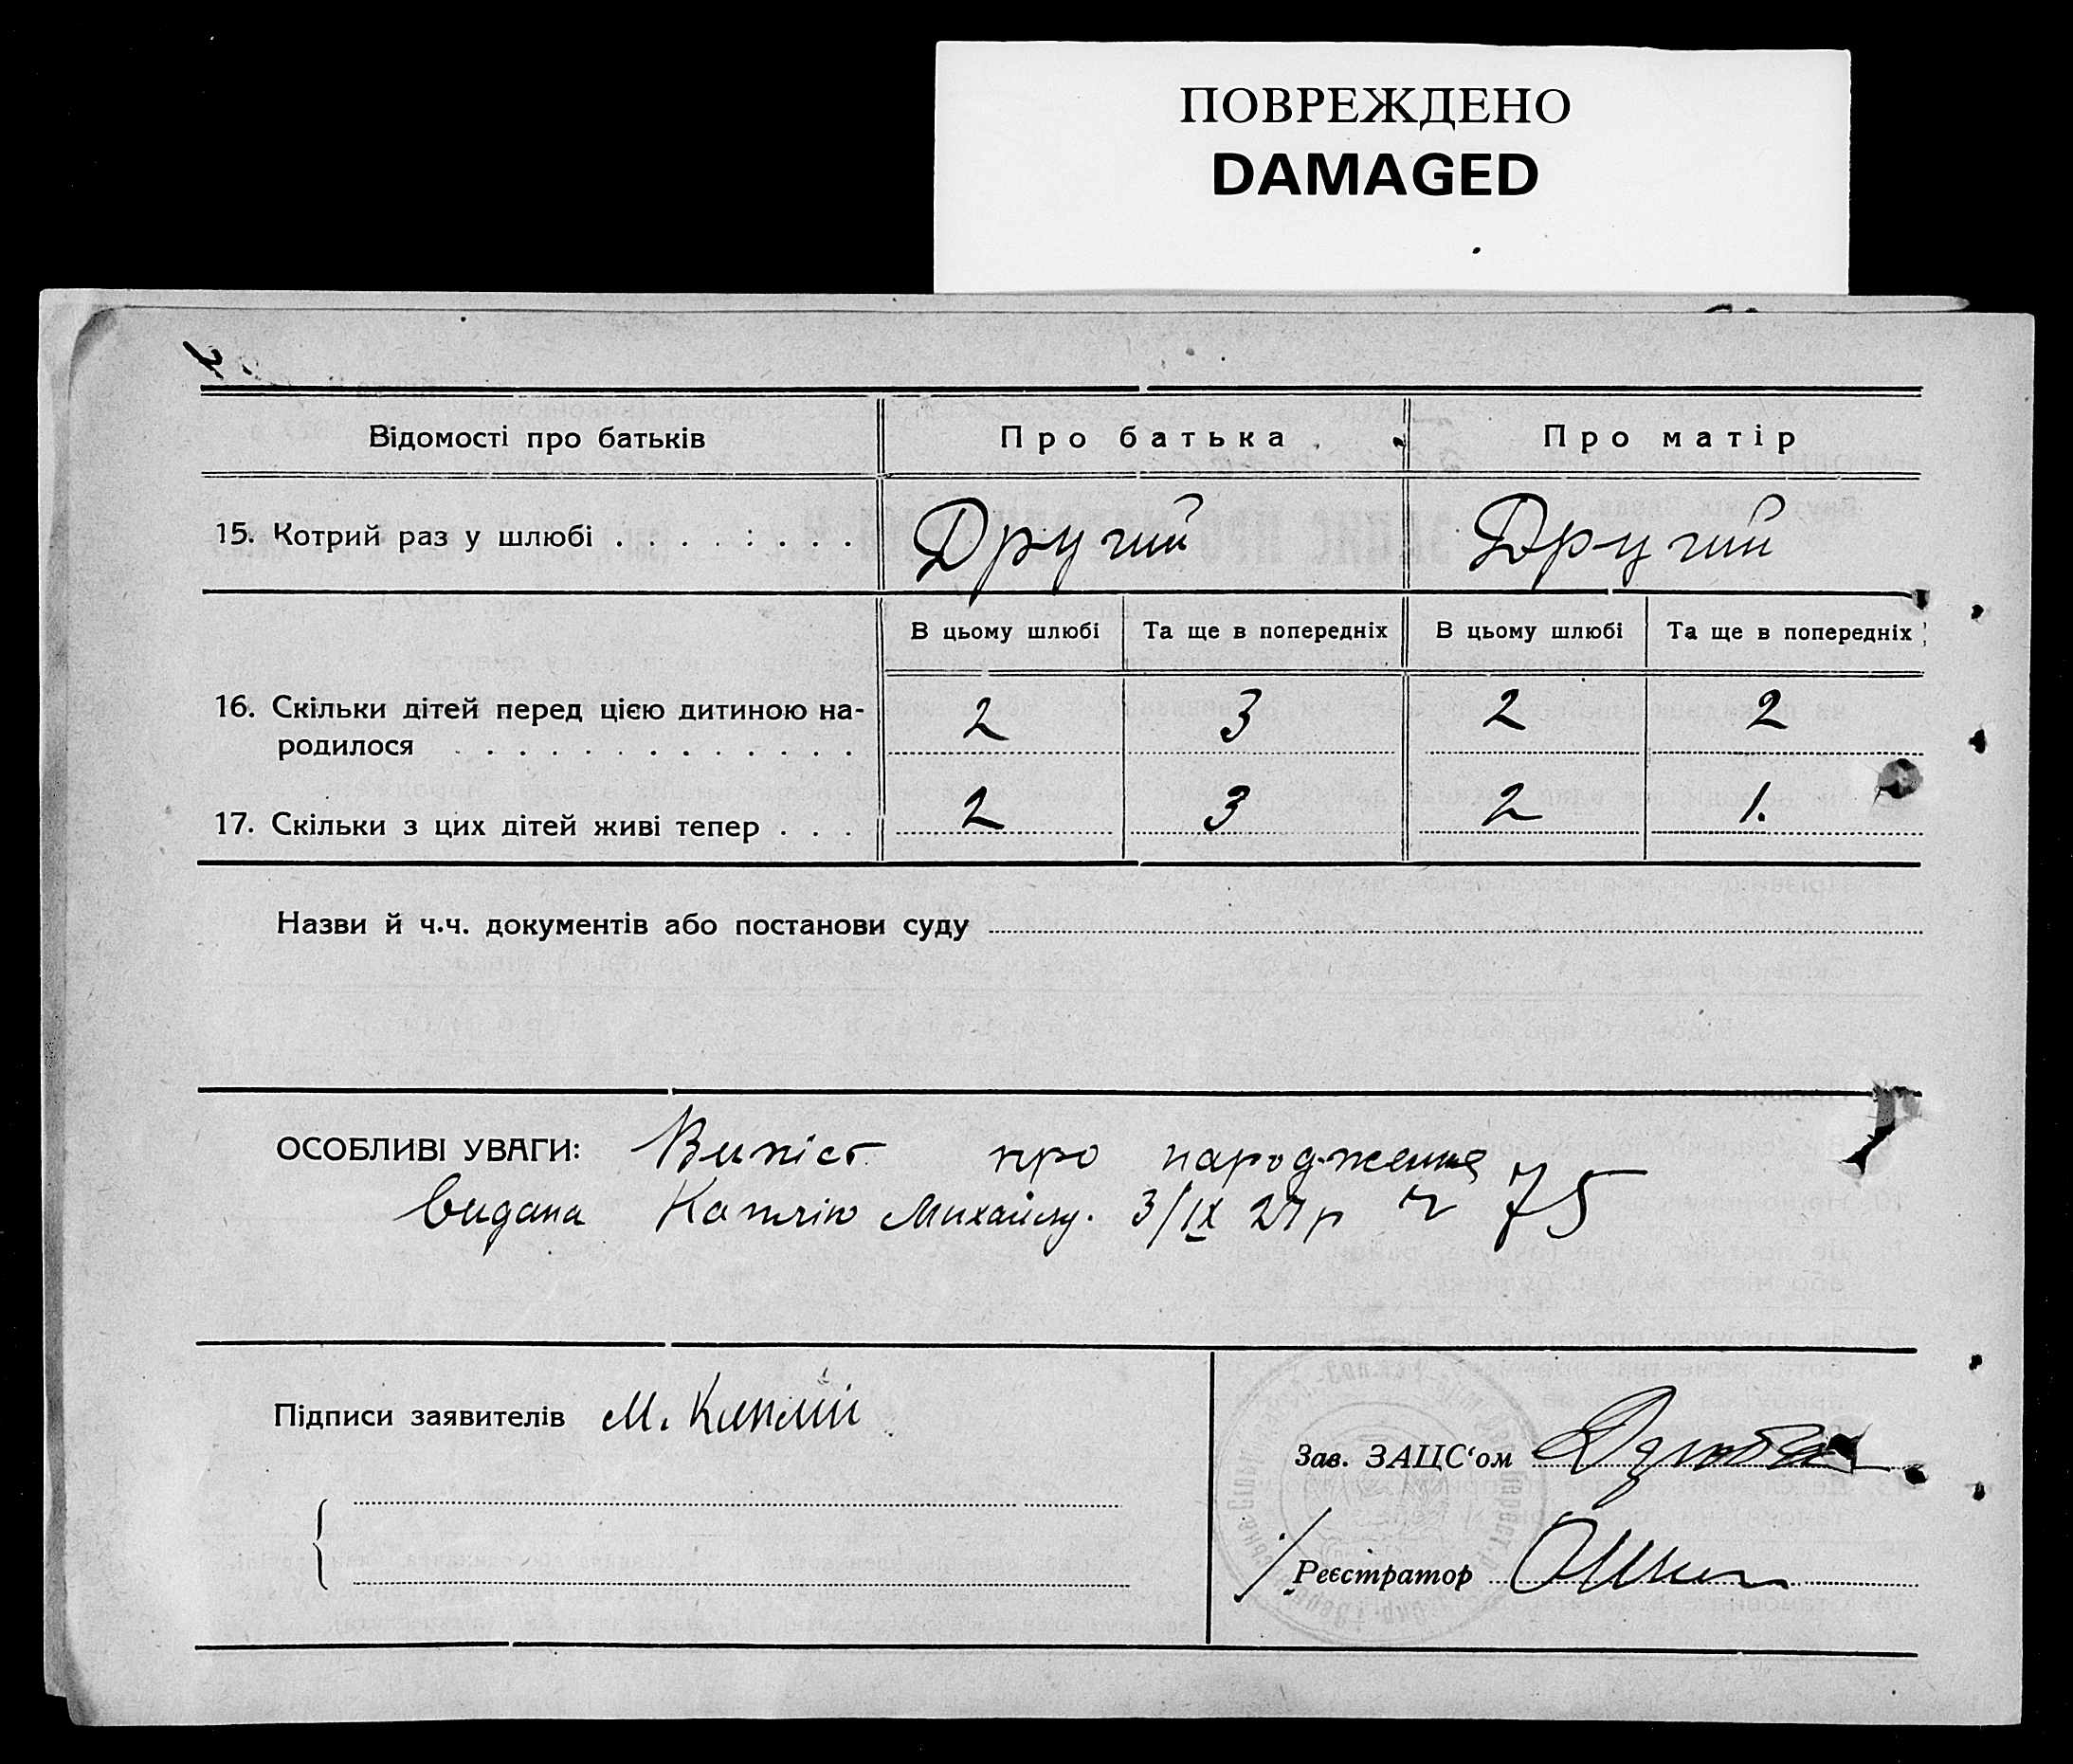 ПОВРЕЖДЕНО
DAMAGED
Відомості про батьків
Про батька
Про матір
15. Котрий раз у шлюбі
Другий
Другий
В цьому шлюбі
Та ще в попередніх
В цьому шлюбі
Та ще в попередніх
16. Скільки дітей перед цією дитиною на-
родилося
2
3
2
2
17. Скільки з цих дітей живі тепер
2
3
2
1.
Назви й ч.ч. документів або постанови суду
ОСОБЛИВІ УВАГИ: Випіст про народження
видана Каплію Михайлу. 3/IX 27 р ч 75
Підписи заявителів М. Каплій
Зав. ЗАЦС‘ом
Реєстратор